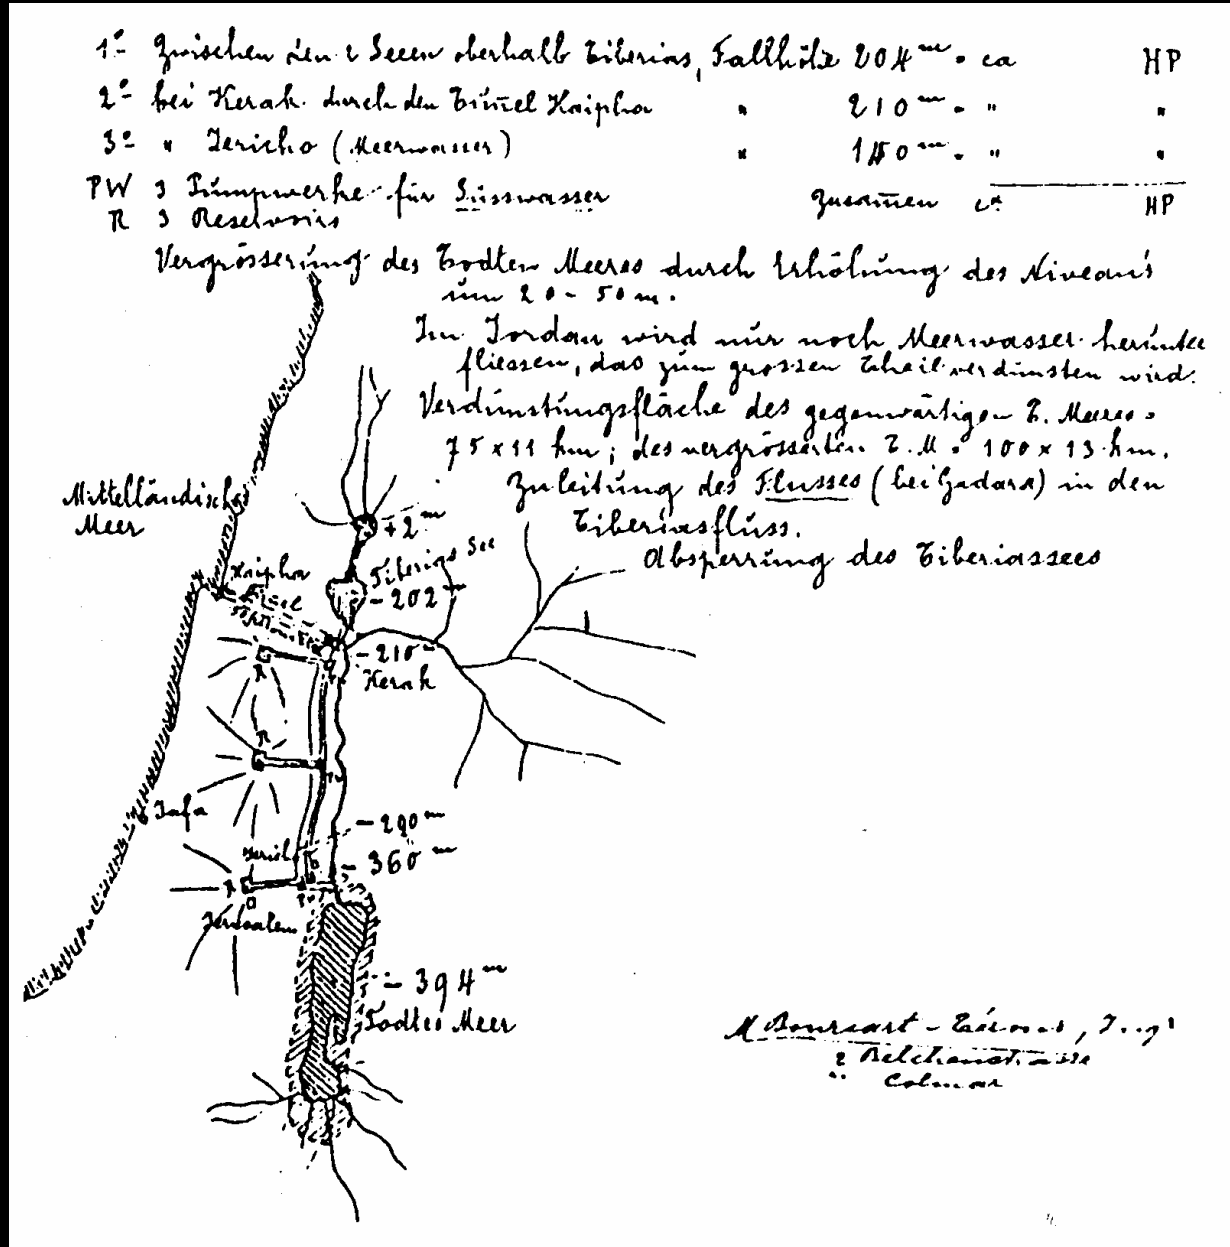 1º Zwischen den 2 Seeen oberhalb Tiberias, Fallhöhe 204 m. ca HP
2º bei Kerak durch den Tunnel Kaipha " 210 m. " "
3º " Jericho (Meerwasser) " 150 m. " "
PW 3 Pumpwerke für Süsswasser Zusam̅en ca HP
R 3 Reservoirs
Vergrösserung des Todten Meeres durch Erhöhung des Niveau's
um 20 - 50 m.
Im Jordan wird nur noch Meerwasser herunter
fliessen, das zum grossen Theil verdunsten wird.
Verdunstungsfläche des gegenwärtigen T. Meeres =
75 x 11 km; des vergrösserten T. M. = 100 x 13 km.
Zuleitung des Flusses (bei Gadara) in den
Tiberiasfluss.
Absperrung des Tiberiassees
Mittelländisches
Meer
+2 m
Kaipha
Tunnel
Tiberias See
- 202 m
- 210
Kerak
R
R
Jafa
- 290 m
Jericho
- 360 m
R
Jerusalem
- 394 m
Todtes Meer
M Bourcart -
2 Belchenstrasse
Colmar